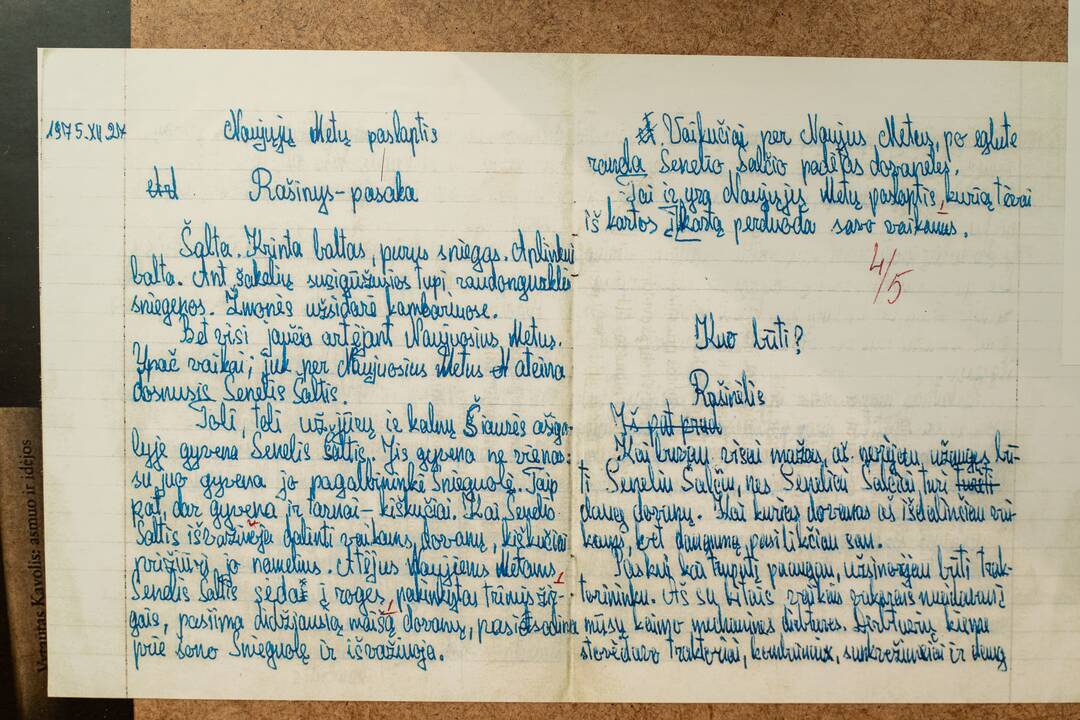 1975.XII.27
Naujųjų Metų paslaptis
Rašinys-pasaka
Šalta. Krinta baltas, purus sniegas. Aplinkui
balta. Ant šakelių susigūžusios tupi raudongurklės
sniegenos. Žmonės užsidarė kambariuose.
Bet visi jaučia artėjant Naujuosius Metus.
Ypač vaikai; juk per Naujuosius Metus ateina
dosnusis Senelis Šaltis.
Toli, toli už jūrų ir kalnų Šiaurės ašiga-
lyje gyvena Senelis Šaltis. Jis gyvena ne vienas:
su juo gyvena jo pagalbininkė Snieguolė. Taip
pat, dar gyvena ir tarnai – kiškučiai. Kai Senelis
Šaltis išvažiuoja dalinti vaikams, dovanų, kiškučiai
prižiūri jo namelius. Atėjus Naujiems Metams,
Senelis Šaltis sėda į roges, pakinkytas trimis žir-
gais, pasiima didžiausią maišą dovanų, pasisodina
prie šono Snieguolę ir išvažiuoja.
Vaikučiai per Naujus Metus, po eglute
randa Senelio Šalčio padėtas dovanėles.
Tai ir yra Naujųjų Metų paslaptis, kurią tėvai
iš kartos į kartą perduoda savo vaikams.
4/5
Kuo būti?
Rašinėlis
Iš pat prad
Kai buvau visai mažas, aš norėjau užaugęs bū-
ti Seneliu Šalčiu, nes Seneliai Šalčiai turi
daug dovanų. Kai kurias dovanas aš išdalinčiau vai-
kams, bet daugumą pasilikčiau sau.
Paskui, kai truputį paaugau, užsinorėjau būti trak-
torininku. Aš su kitais vaikais vakarais nueidavau į
mūsų kaimo mechanines dirbtuves. Dirbtuvių kieme
stovėdavo traktoriai, kombainai, sunkvežimiai ir daug
Vytautas Kavolis: asmuo ir idėjos